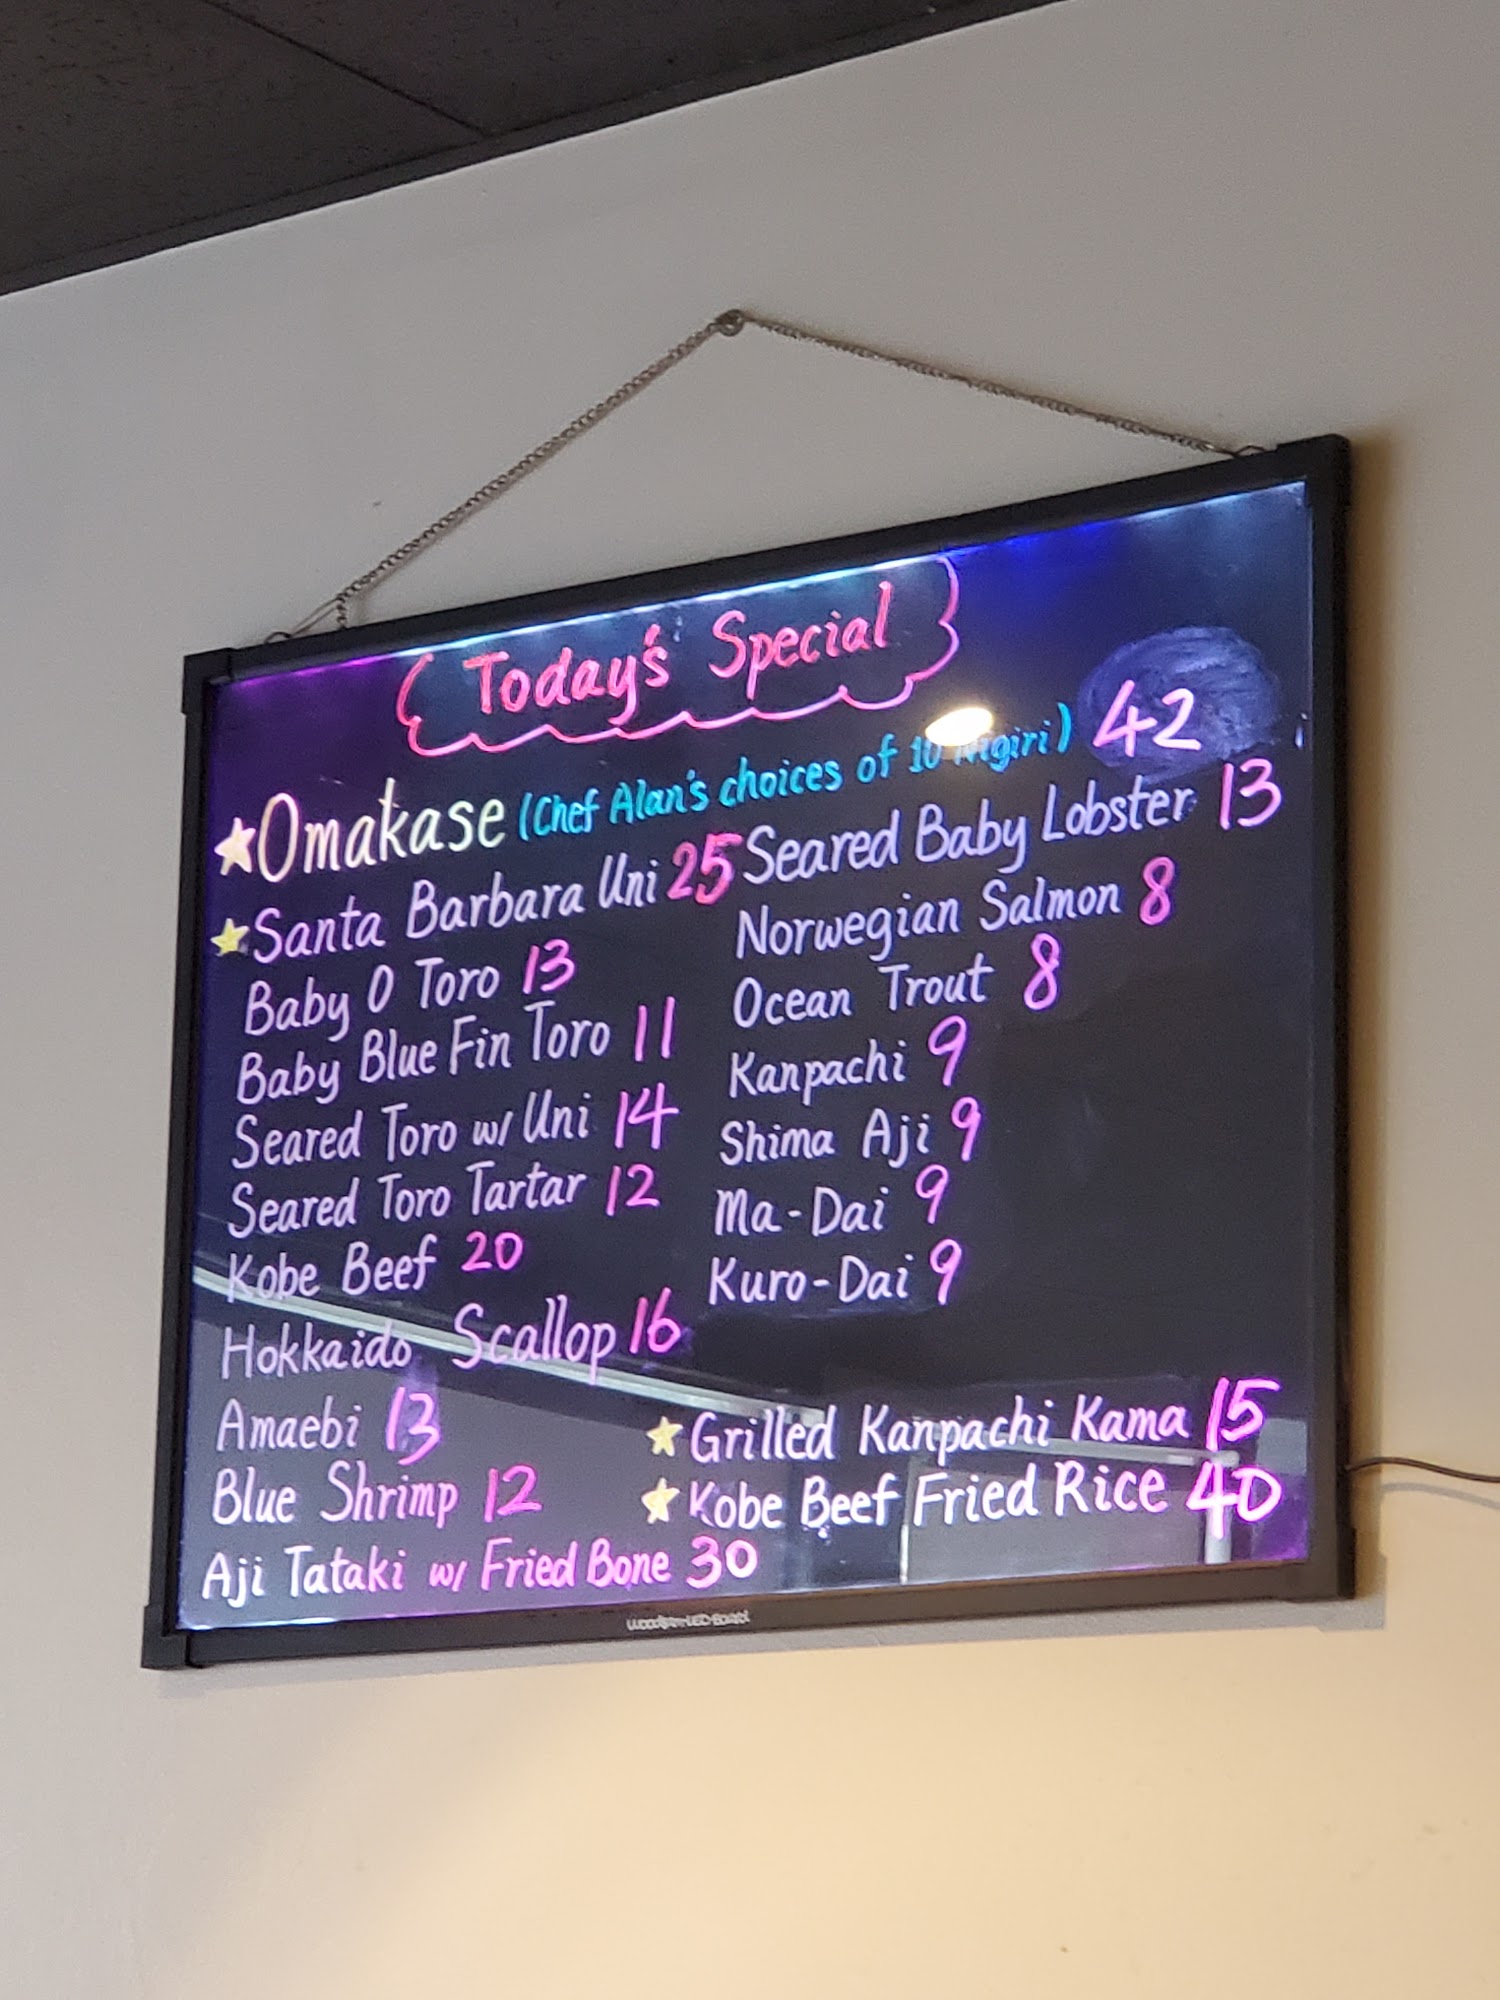 Today's Special
Omakase (Chef Alan's choices of 10 Nigiri) 42
Santa Barbara Uni 25
Baby O Toro 13
Baby Blue Fin Toro 11
Seared Toro w/ Uni 14
Seared Toro Tartar 12
Kobe Beef 20
Hokkaido Scallop 16
Amaebi 13
Blue Shrimp 12
Aji Tataki w/ Fried Bone 30
Seared Baby Lobster 13
Norwegian Salmon 8
Ocean Trout 8
Kanpachi 9
Shima Aji 9
Ma-Dai 9
Kuro-Dai 9
Grilled Kanpachi Kama 15
Kobe Beef Fried Rice 40